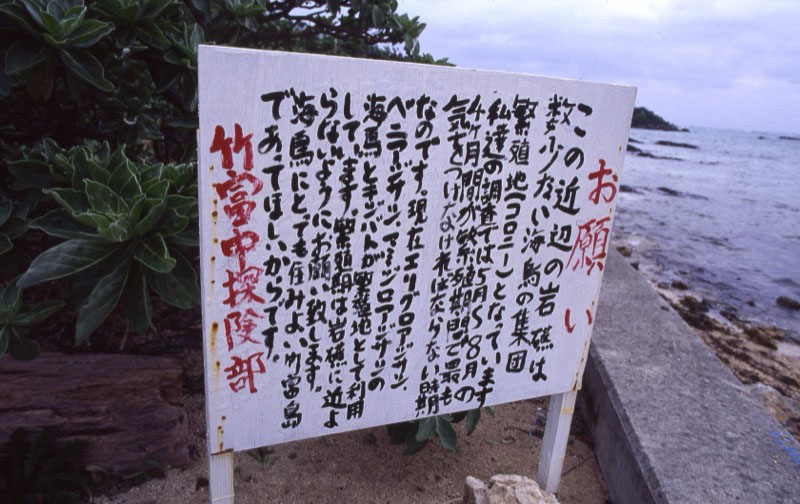 お願い
この近辺の岩礁は
数少ない海鳥の集団
繁殖地(コロニー)となっています
私達の調査では5月〜8月の
4ヶ月間が繁殖期間で最も
気をつけなければならない時期
なのです。現在エリグロアジサシ
ベニアジサシ、マミジロアジサシの
海鳥とキジバトが繁殖地として利用
しています。繁殖期は岩礁に近よ
らないようにお願い致します。
海鳥にとても住みよい竹富島
であってほしいからです。
竹富中探険部